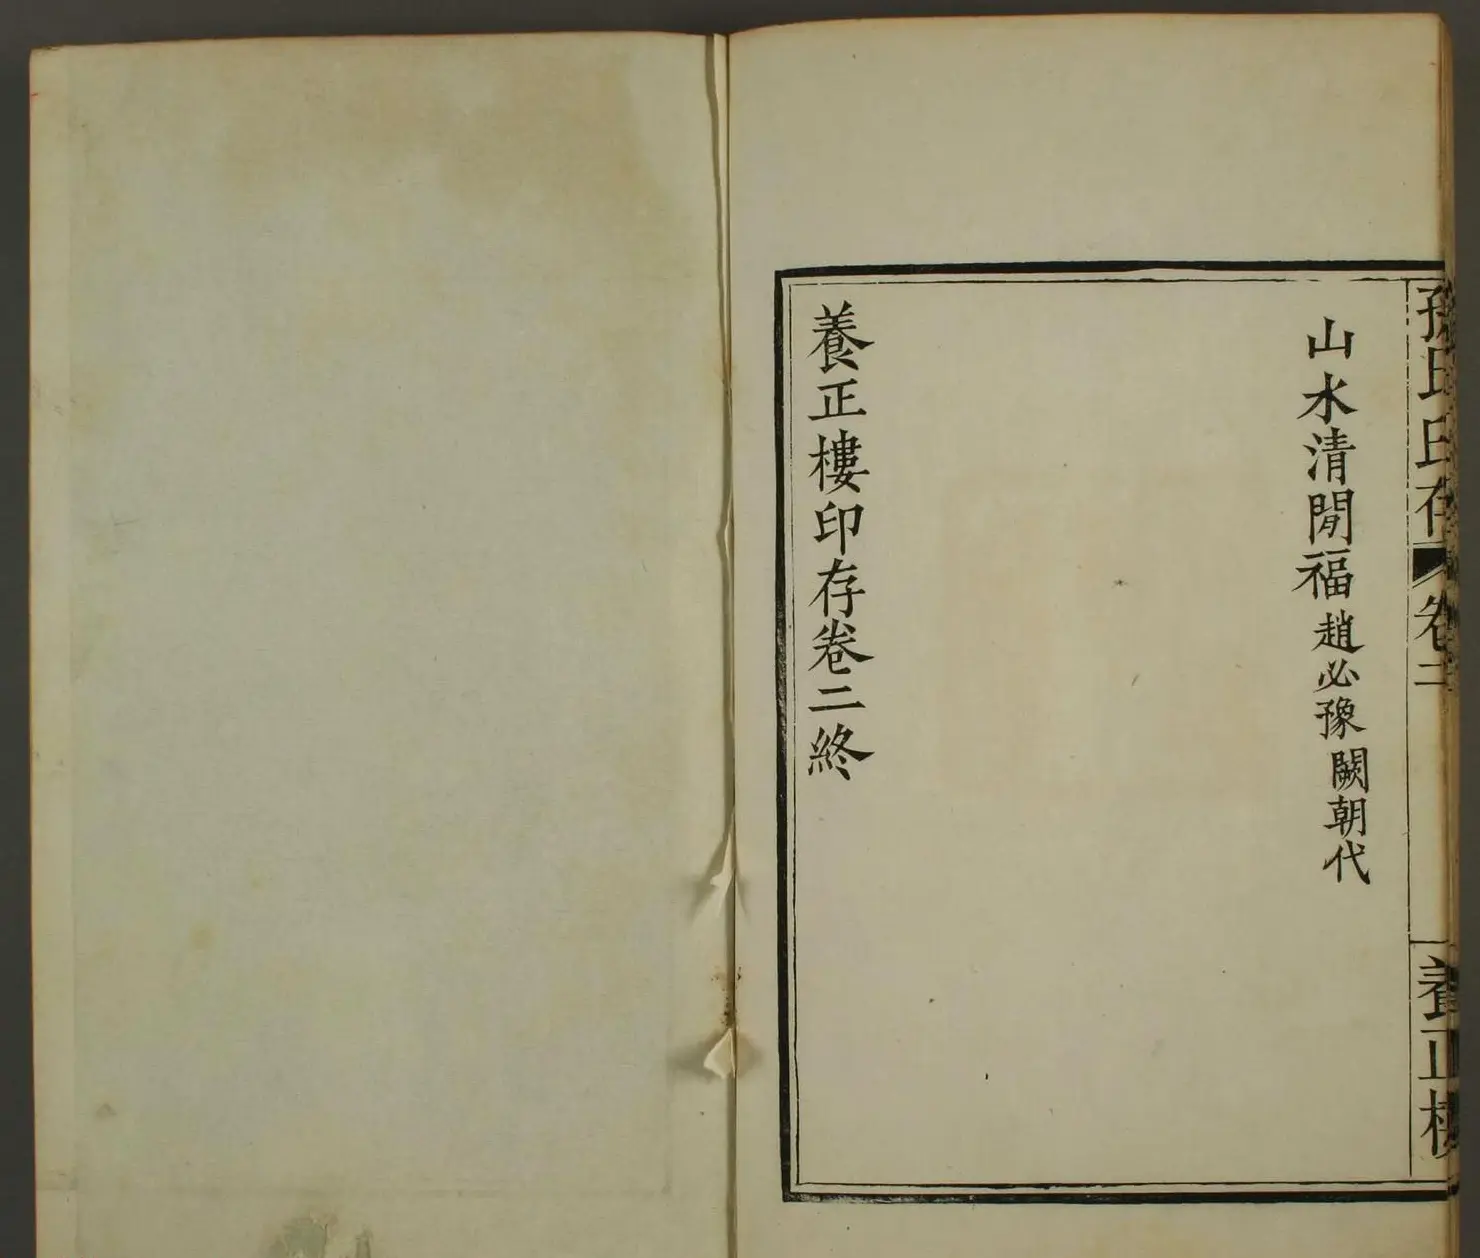 孫氏印存 卷二 養正樓
山水清閒福趙必豫闕朝代
養正樓印存卷二終